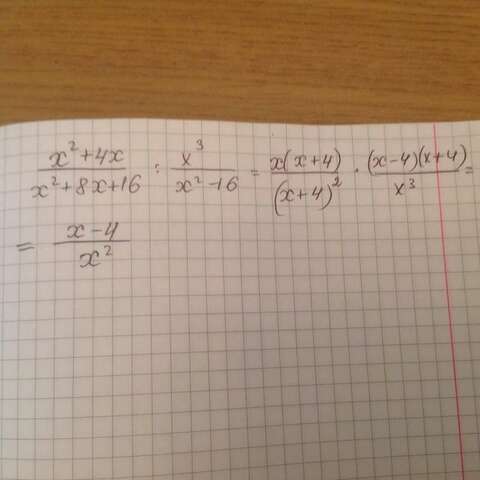 (x²+4x)/(x²+8x+16) : x³/(x²-16) = x(x+4)/(x+4)² · (x-4)(x+4)/x³ =
= (x-4)/x²